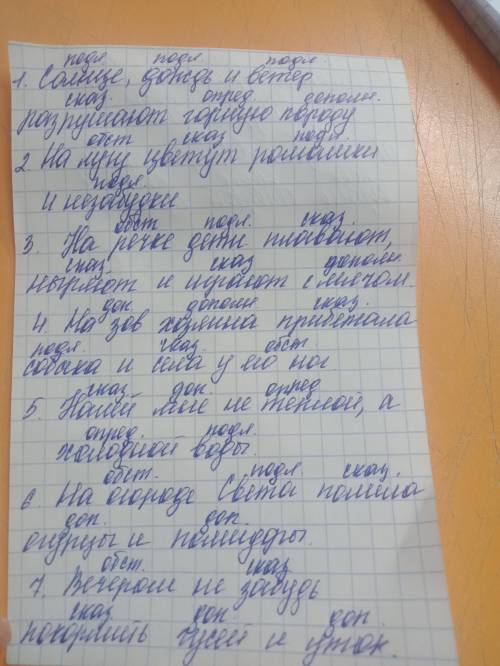 подл. подл. подл.
1. Солнце, дождь и ветер
сказ. опред. дополн.
разрушают горную породу
обст сказ подл.
2. На лугу цветут ромашки
подл.
и незабудки
обст. подл. сказ.
3. На речке дети плавают,
сказ. сказ дополн.
ныряют и играют с мячом.
доп. дополн. сказ.
4. На зов хозяина прибежала
подл. сказ. обст.
собака и села у его ног
сказ. доп. опред.
5. Налей мне не теплой, а
опред. подл.
холодной воды.
обст. подл сказ.
6. На огороде Света полила
доп. доп.
огурцы и помидоры.
обст. сказ
7. Вечером не забудь
сказ доп. доп.
покормить гусей и уток.